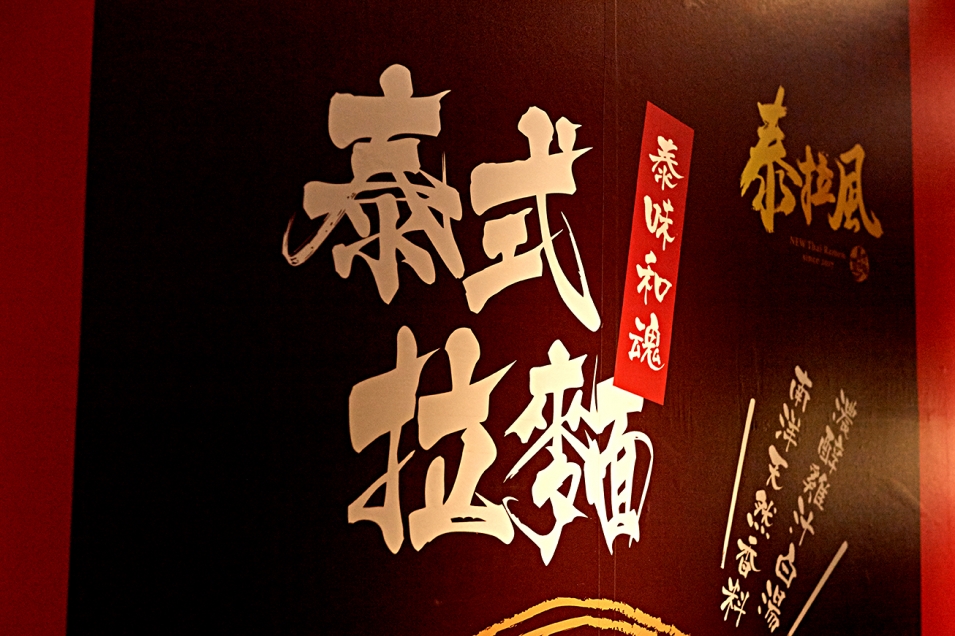 泰式
拉麵
泰味和魂
泰拉風
NEW Thai Ramen
SINCE 2017
濃醇雞汁白湯
南洋天然香料